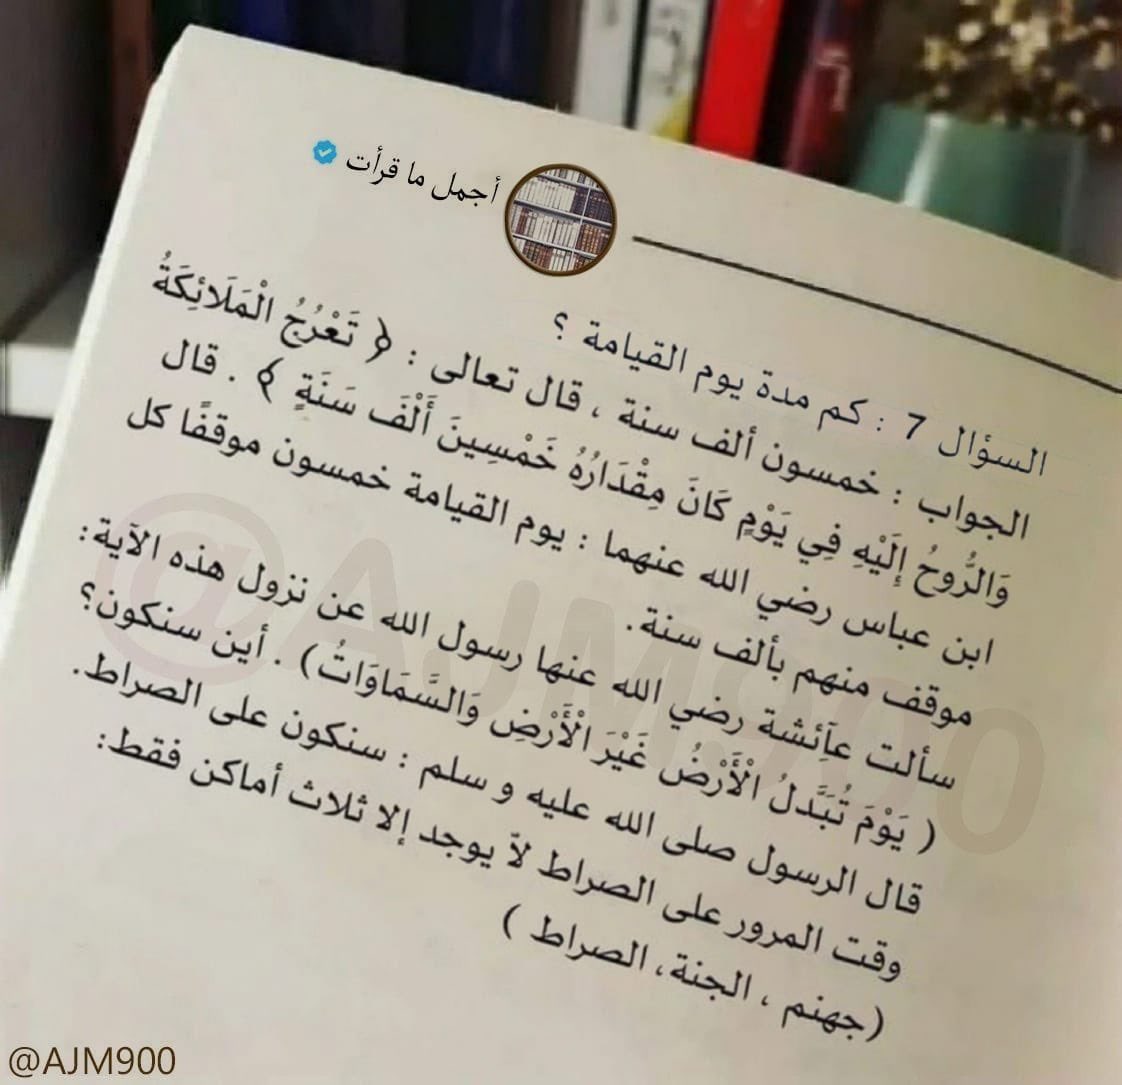 أجمل ما قرأت
السؤال 7 : كم مدة يوم القيامة ؟
الجواب : خمسون ألف سنة ، قال تعالى : ﴿ تَعْرُجُ الْمَلَائِكَةُ
وَالرُّوحُ إِلَيْهِ فِي يَوْمٍ كَانَ مِقْدَارُهُ خَمْسِينَ أَلْفَ سَنَةٍ ﴾ . قال
ابن عباس رضي الله عنهما : يوم القيامة خمسون موقفًا كل
موقف منهم بألف سنة.
سألت عآئشة رضي الله عنها رسول الله عن نزول هذه الآية:
( يَوْمَ تُبَدَّلُ الْأَرْضُ غَيْرَ الْأَرْضِ وَالسَّمَاوَاتُ) . أين سنكون؟
قال الرسول صلى الله عليه و سلم : سنكون على الصراط.
وقت المرور على الصراط لآ يوجد إلا ثلاث أماكن فقط:
(جهنم ، الجنة، الصراط )
@AJM900
@AJM900